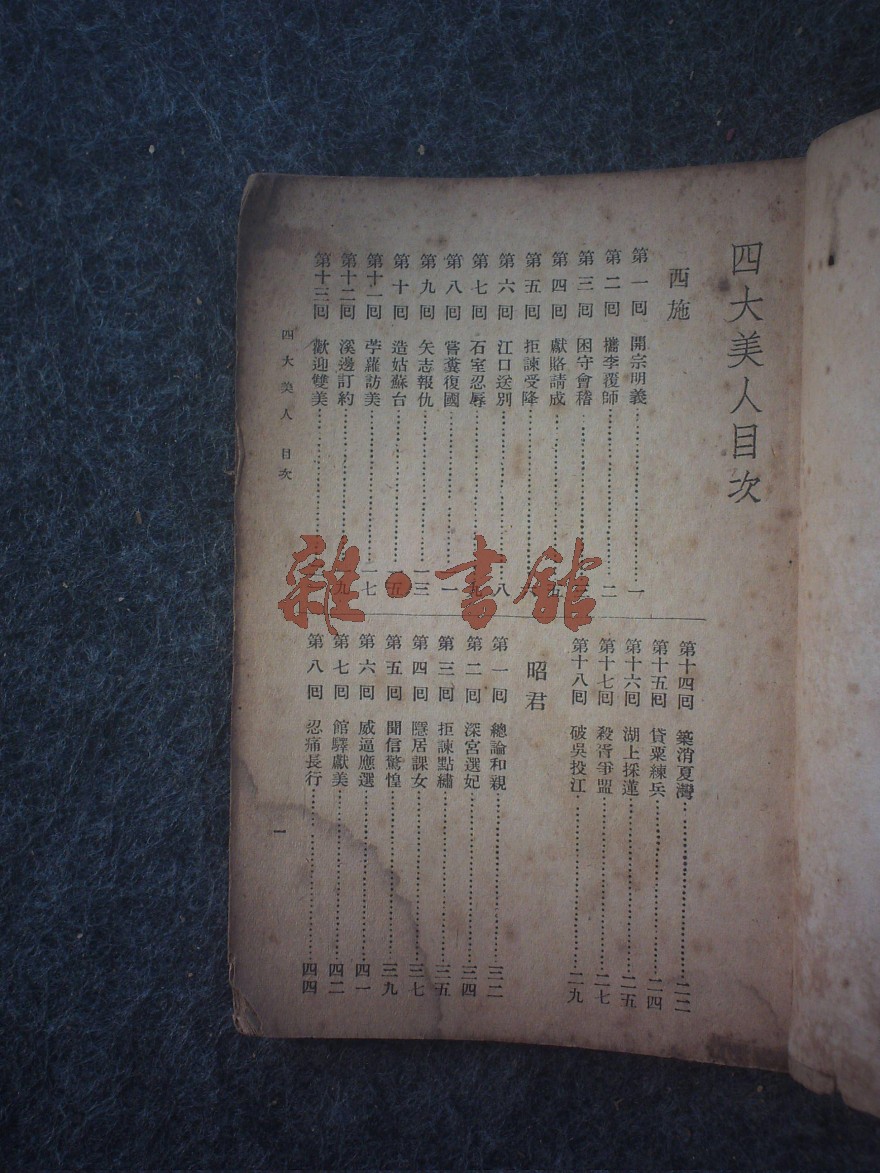 四大美人目次
西施
第一囘 開宗明義 一
第二囘 檇李覆師 二
第三囘 困守會稽 三
第四囘 獻賂請成 五
第五囘 拒諫受降
第六囘 江口送別 八
第七囘 石室忍辱 九
第八囘 嘗糞復國 一
第九囘 矢志報仇 一三
第十囘 造姑蘇台 一五
第十一囘 苧蘿訪美 一七
第十二囘 溪邊訂約 一九
第十三囘 歡迎雙美
第十四囘 築消夏灣 二二
第十五囘 貸粟練兵 二四
第十六囘 湖上採蓮 二五
第十七囘 殺胥爭盟 二七
第十八囘 破吳投江 二九
昭君
第一囘 總論和親 三二
第二囘 深宮選妃 三四
第三囘 拒諫點繡 三五
第四囘 隱居課女 三七
第五囘 聞信驚惶 三九
第六囘 威逼應選 四一
第七囘 館驛獻美 四二
第八囘 忍痛長行 四四
四大美人 目次
一
雜·書館